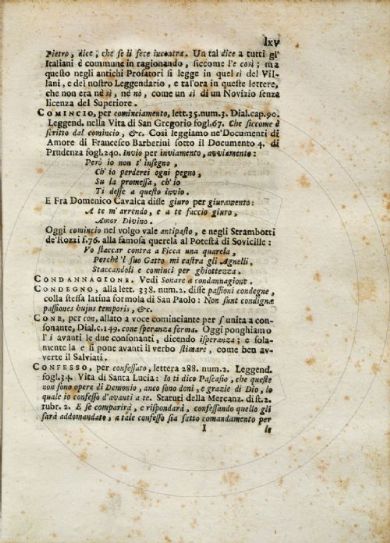 lxv
Pietro, dice, che si fece incontra. Un tal dice a tutti gl'
Italiani è commune in ragionando, siccome l'e così; ma
questo negli antichi Prosatori si legge in quel di Vil-
lani, e del nostro Leggendario, e tal'ora in queste lettere,
che non era nè sì, nè nò, come un sì di un Novizio senza
licenza del Superiore.
COMINCIO, per cominciamento, lett.35.num.3. Dial.cap.90.
Leggend. nella Vita di San Gregorio fogl.67. Che siccome è
scritto dal comincio, &c. Così leggiamo ne'Documenti di
Amore di Francesco Barberini sotto il Documento 4. di
Prudenza fogl.240. Invio per inviamento, avviamento:
Però io non t'insegno,
Ch'io perderei ogni pegno,
Su la promessa, ch'io
Ti desse a questo invio.
E Fra Domenico Cavalca disse giuro per giuramento:
A te m'arrendo, e a te faccio giuro,
Amor Divino.
Oggi comincio nel volgo vale antipasto, e negli Strambotti
de'Rozzi f.76. alla famosa querela al Potestà di Sovicille:
Vo staccar contra a Ficca una quarela,
Perchè 'l suo Gatto mi castra gli Agnelli.
Staccandoli e cominci per ghiottezza.
CONDANNAGIONE. Vedi Sonare a condannagione.
CONDEGNO, alla lett. 338. num.2. disse passioni condegne,
colla stessa latina formola di San Paolo: Non sunt condignæ
passiones hujus temporis, &c.
CONE, per con, allato a voce cominciante per s'unita a con-
sonante, Dial.c.149. cone speranza ferma. Oggi ponghiamo
l'i avanti le due consonanti, dicendo isperanza; e sola-
mente la e si pone avanti il verbo stimare, come ben av-
verte il Salviati.
CONFESSO, per confessato, lettera 288. num.2. Leggend.
fogl.34. Vita di Santa Lucia: Io ti dico Pascasio, che queste
non sono opere di Demonio, anco sono doni, e grazie di Dio, lo
quale io confesso d'avanti a te. Statuti della Mercanz. dist.2.
rubr.2. E se comparirà, e risponderà, confessando quello gli
sarà addomandato, a tale confesso sia fatto comandamento per
I le